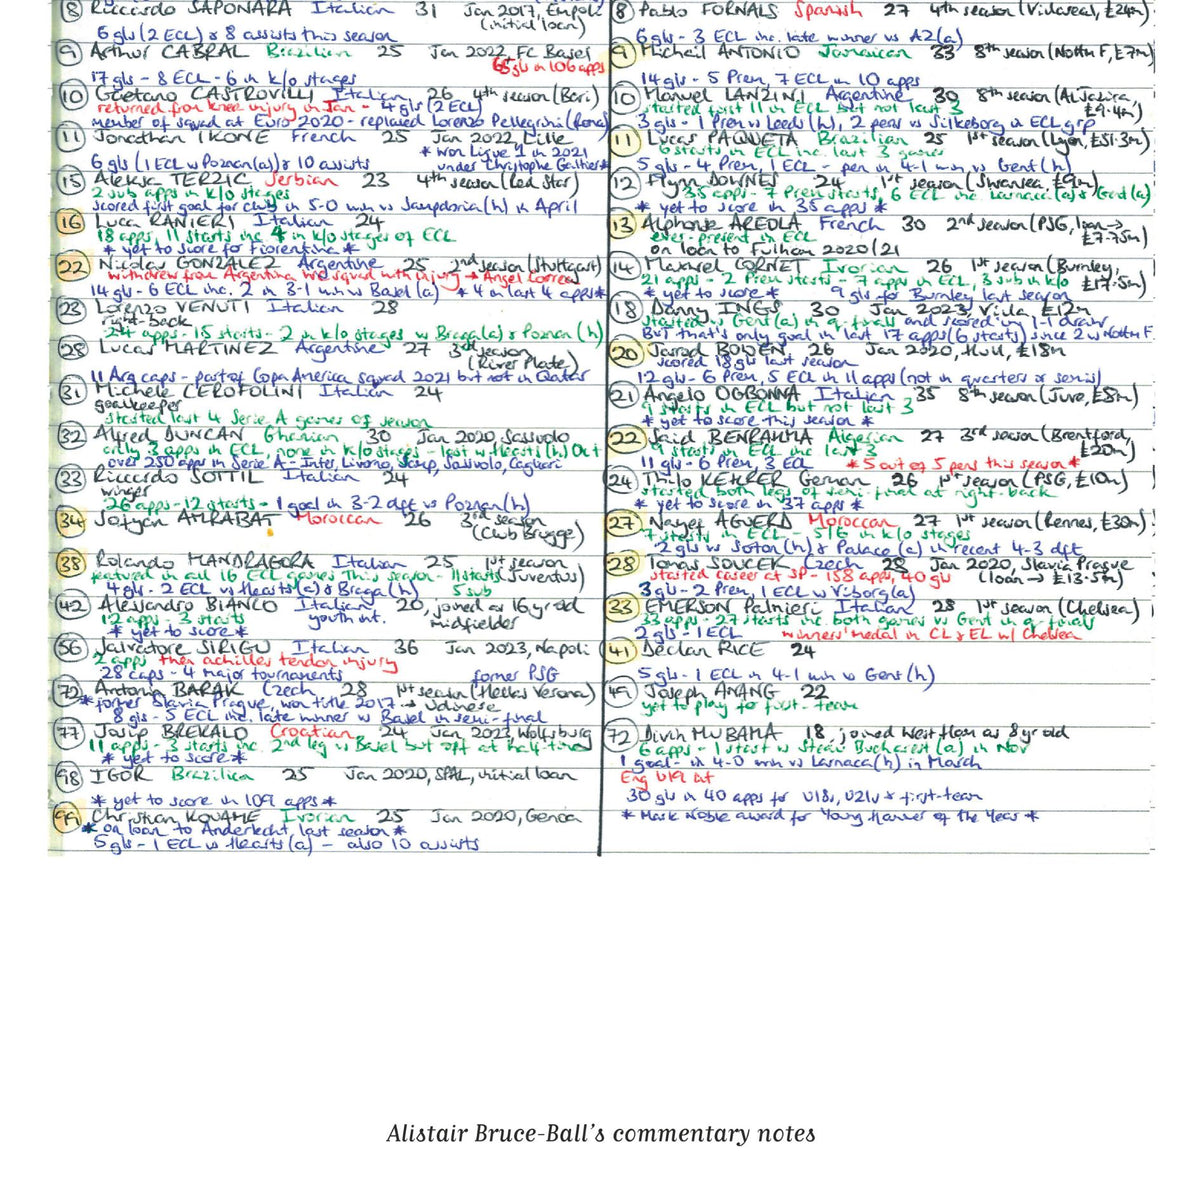 8 Riccardo SAPONARA Italian 31 Jan 2017, Empoli
(initial loan)
6 gls (2 ECL) & 8 assists this season
9 Arthur CABRAL Brazilian 25 Jan 2022, FC Basel
65 gls in 106 apps
17 gls - 8 ECL - 6 in k/o stages
10 Gaetano CASTROVILLI Italian 26 4th season (Bari)
returned from knee injury in Jan - 4 gls (2 ECL)
member of squad at Euro 2020 - replaced Lorenzo Pellegrini (Roma)
11 Jonathan IKONE French 25 Jan 2022, Lille
* won Ligue 1 in 2021
6 gls (1 ECL v Poznan (a)) & 10 assists under Christophe Galtier *
15 Aleksa TERZIC Serbian 23 4th season (Red Star)
2 sub apps in k/o stages
scored first goal for club in 5-0 win vs Sampdoria (h) in April
16 Luca RANIERI Italian 24
18 apps, 11 starts inc. 4 in k/o stages of ECL
* yet to score for Fiorentina *
22 Nicolas GONZALEZ Argentine 25 2nd season (Stuttgart)
withdrew from Argentina WC squad with injury → Angel Correa
14 gls - 6 ECL inc. 2 in 3-1 win vs Basel (a) * 4 in last 4 apps *
23 Lorenzo VENUTI Italian 28
right-back
24 apps - 15 starts - 2 in k/o stages vs Braga (a) & Poznan (h)
28 Lucas MARTINEZ Argentine 27 3rd season
(River Plate)
11 Arg caps - part of Copa America squad 2021 but not in Qatar
31 Michele CEROFOLINI Italian 24
goalkeeper
started last 4 Serie A games of season
32 Alfred DUNCAN Ghanian 30 Jan 2020, Sassuolo
only 3 apps in ECL, none in k/o stages - last v Hearts (h) Oct
over 250 apps in Serie A - Inter, Livorno, Samp, Sassuolo, Cagliari
33 Riccardo SOTTIL Italian 24
winger
26 apps - 12 starts - 1 goal in 3-2 dft vs Poznan (h)
34 Sofyan AMRABAT Moroccan 26 3rd season
(Club Brugge)
38 Rolando MANDRAGORA Italian 25 1st season
featured in all 16 ECL games this season - 11 starts (Juventus)
4 gls - 2 ECL v Hearts (a) & Braga (h) 5 sub
42 Alessandro BIANCO Italian 20, joined as 16 yr old
12 apps - 3 starts youth int. midfielder
* yet to score *
56 Salvatore SIRIGU Italian 36 Jan 2023, Napoli
2 apps then achilles tendon injury
28 caps - 4 major tournaments former PSG
72 Antonin BARAK Czech 28 1st season (Hellas Verona)
* former Slavia Prague, won title 2017 → Udinese
8 gls - 5 ECL inc. late winner vs Basel in semi-final
77 Josip BREKALO Croatian 24 Jan 2023, Wolfsburg
11 apps - 3 starts inc. 2nd leg vs Basel but off at half-time
* yet to score *
98 IGOR Brazilian 25 Jan 2020, SPAL, initial loan
* yet to score in 109 apps *
99 Christian KOUAME Ivorian 25 Jan 2020, Genoa
* on loan to Anderlecht last season *
5 gls - 1 ECL vs Hearts (a) - also 10 assists
8 Pablo FORNALS Spanish 27 4th season (Villareal, £24m)
6 gls - 3 ECL inc. late winner vs AZ (a)
9 Michail ANTONIO Jamaican 33 8th season (Nottm F, £7m)
14 gls - 5 Prem, 7 ECL in 10 apps
10 Manuel LANZINI Argentine 30 8th season (Al Jazira,
started first 11 in ECL but not last 3 £9.4m)
3 gls - 1 Prem vs Leeds (h), 2 pens vs Silkeborg in ECL grp
11 Lucas PAQUETA Brazilian 25 1st season (Lyon, £51.3m)
6 starts in ECL inc. last 3 games
5 gls - 4 Prem, 1 ECL - pen in 4-1 win vs Gent (h)
12 Flynn DOWNES 24 1st season (Swansea, £9m)
35 apps - 7 Prem starts, 6 ECL inc. Larnaca (a) & Gent (a)
* yet to score in 35 apps *
13 Alphonse AREOLA French 30 2nd season (PSG, loan →
ever-present in ECL £7.75m)
on loan to Fulham 2020/21
14 Maxwel CORNET Ivorian 26 1st season (Burnley,
21 apps - 2 Prem starts - 7 apps in ECL, 3 sub in k/o £17.5m)
* yet to score * 9 gls for Burnley last season
18 Danny INGS 30 Jan 2023, Villa, £12m
started vs Gent (a) in q-finals and scored in 1-1 draw
But that's only goal in last 17 apps (6 starts) since 2 vs Nottm F
20 Jarrod BOWEN 26 Jan 2020, Hull, £18m
scored 18 gls last season
12 gls - 6 Prem, 5 ECL in 11 apps (not in quarters or semis)
21 Angelo OGBONNA Italian 35 8th season (Juve, £8m)
9 starts in ECL but not last 3
* yet to score this season *
22 Said BENRAHMA Algerian 27 3rd season (Brentford,
9 starts in ECL inc last 3 £20m)
11 gls - 6 Prem, 3 ECL * 5 out of 5 pens this season *
24 Thilo KEHRER German 26 1st season (PSG, £10m)
started both legs of semi-final at right-back
* yet to score in 37 apps *
27 Nayef AGUERD Moroccan 27 1st season (Rennes, £30m)
7 starts in ECL - 5/6 in k/o stages
2 gls vs Soton (h) & Palace (a) in recent 4-3 dft
28 Tomas SOUCEK Czech 28 Jan 2020, Slavia Prague
started career at SP - 158 apps, 40 gls (loan → £13.5m)
3 gls - 2 Prem, 1 ECL v Viborg (a)
33 EMERSON Palmieri Italian 28 1st season (Chelsea)
33 apps - 27 starts inc. both games vs Gent in q-finals
2 gls - 1 ECL winners' medal in CL & EL w/ Chelsea
41 Declan RICE 24
5 gls - 1 ECL in 4-1 win vs Gent (h)
49 Joseph ANANG 22
yet to play for first-team
72 Divin MUBAMA 18, joined West Ham as 8 yr old
6 apps - 1 start vs Steau Bucharest (a) in Nov
1 goal - in 4-0 win vs Larnaca (h) in March
Eng U19 int
30 gls in 40 apps for U18s, U21s & first-team
* Mark Noble award for Young Hammer of the Year *
Alistair Bruce-Ball's commentary notes